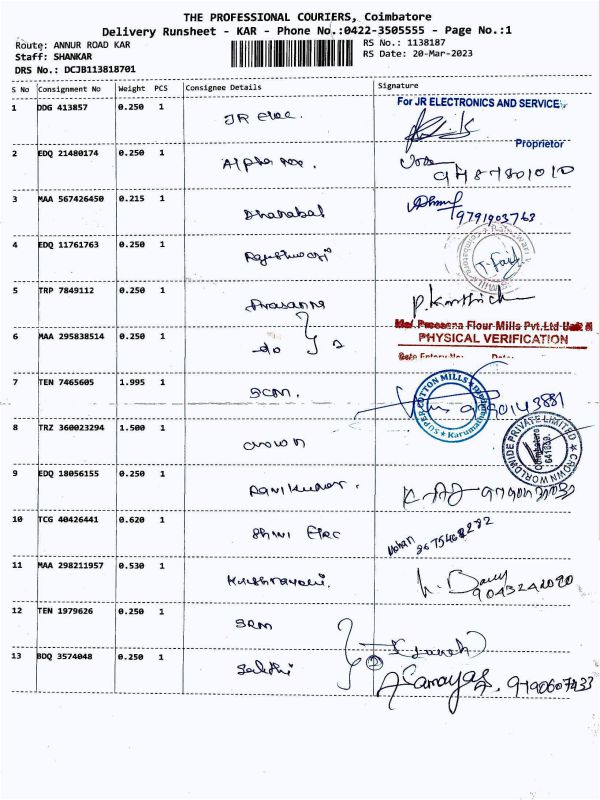 THE PROFESSIONAL COURIERS, Coimbatore
Delivery Runsheet - KAR - Phone No.:0422-3505555 - Page No.:1
Route: ANNUR ROAD KAR
RS No.: 1138187
Staff: SHANKAR
RS Date: 20-Mar-2023
DRS No.: DCJB113818701
S No Consignment No Weight PCS Consignee Details Signature
For JR ELECTRONICS AND SERVICE
1 DDG 413857 0.250 1 JR Elec.
Proprietor
2 EDQ 21480174 0.250 1
9787801010
3 MAA 567426450 0.215 1 Dhanabal
9791903763
4 EDQ 11761763 0.250 1
5 TRP 7849112 0.250 1 Prasanna P. Karthick
Flour Mills Pvt.Ltd
6 MAA 295838514 0.250 1 do 2 PHYSICAL VERIFICATION
Gate Entry No: Date:
7 TEN 7465605 1.995 1 SCM.
SUPER COTTON MILLS
8 TRZ 360023294 1.500 1 crown
CROWN WORLDWIDE PRIVATE LIMITED
9 EDQ 18056155 0.250 1 Ravikumar.
10 TCG 40426441 0.620 1 Shivi Elec Mohan
11 MAA 298211957 0.530 1
9043242020
12 TEN 1979626 0.250 1 SRM
13 BDQ 3574048 0.250 1 Sakthi 2
9790607433